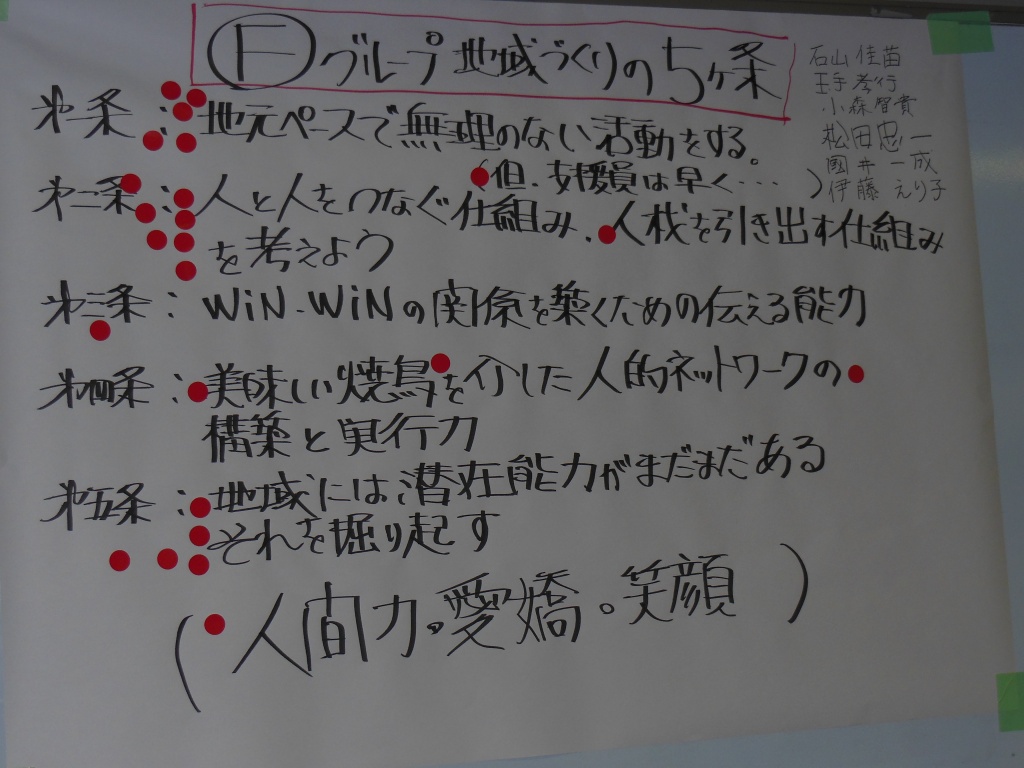 Ⓕグループ 地域づくりの5ヶ条
石山 佳苗
王手 孝行
小森 智貴
松田 忠一
國井 一成
伊藤 えり子
才一条:地元ペースで無理のない活動をする。
(但、支援員は早く‥‥)
才二条:人と人をつなぐ仕組み、人材を引き出す仕組み
を考えよう
才三条:WiN-WiNの関係を築くための伝える能力
才四条:美味しい焼鳥を介した人的ネットワークの
構築と実行力
才五条:地域には潜在能力がまだまだある
それを掘り起す
(人間力。愛嬌。笑顔)